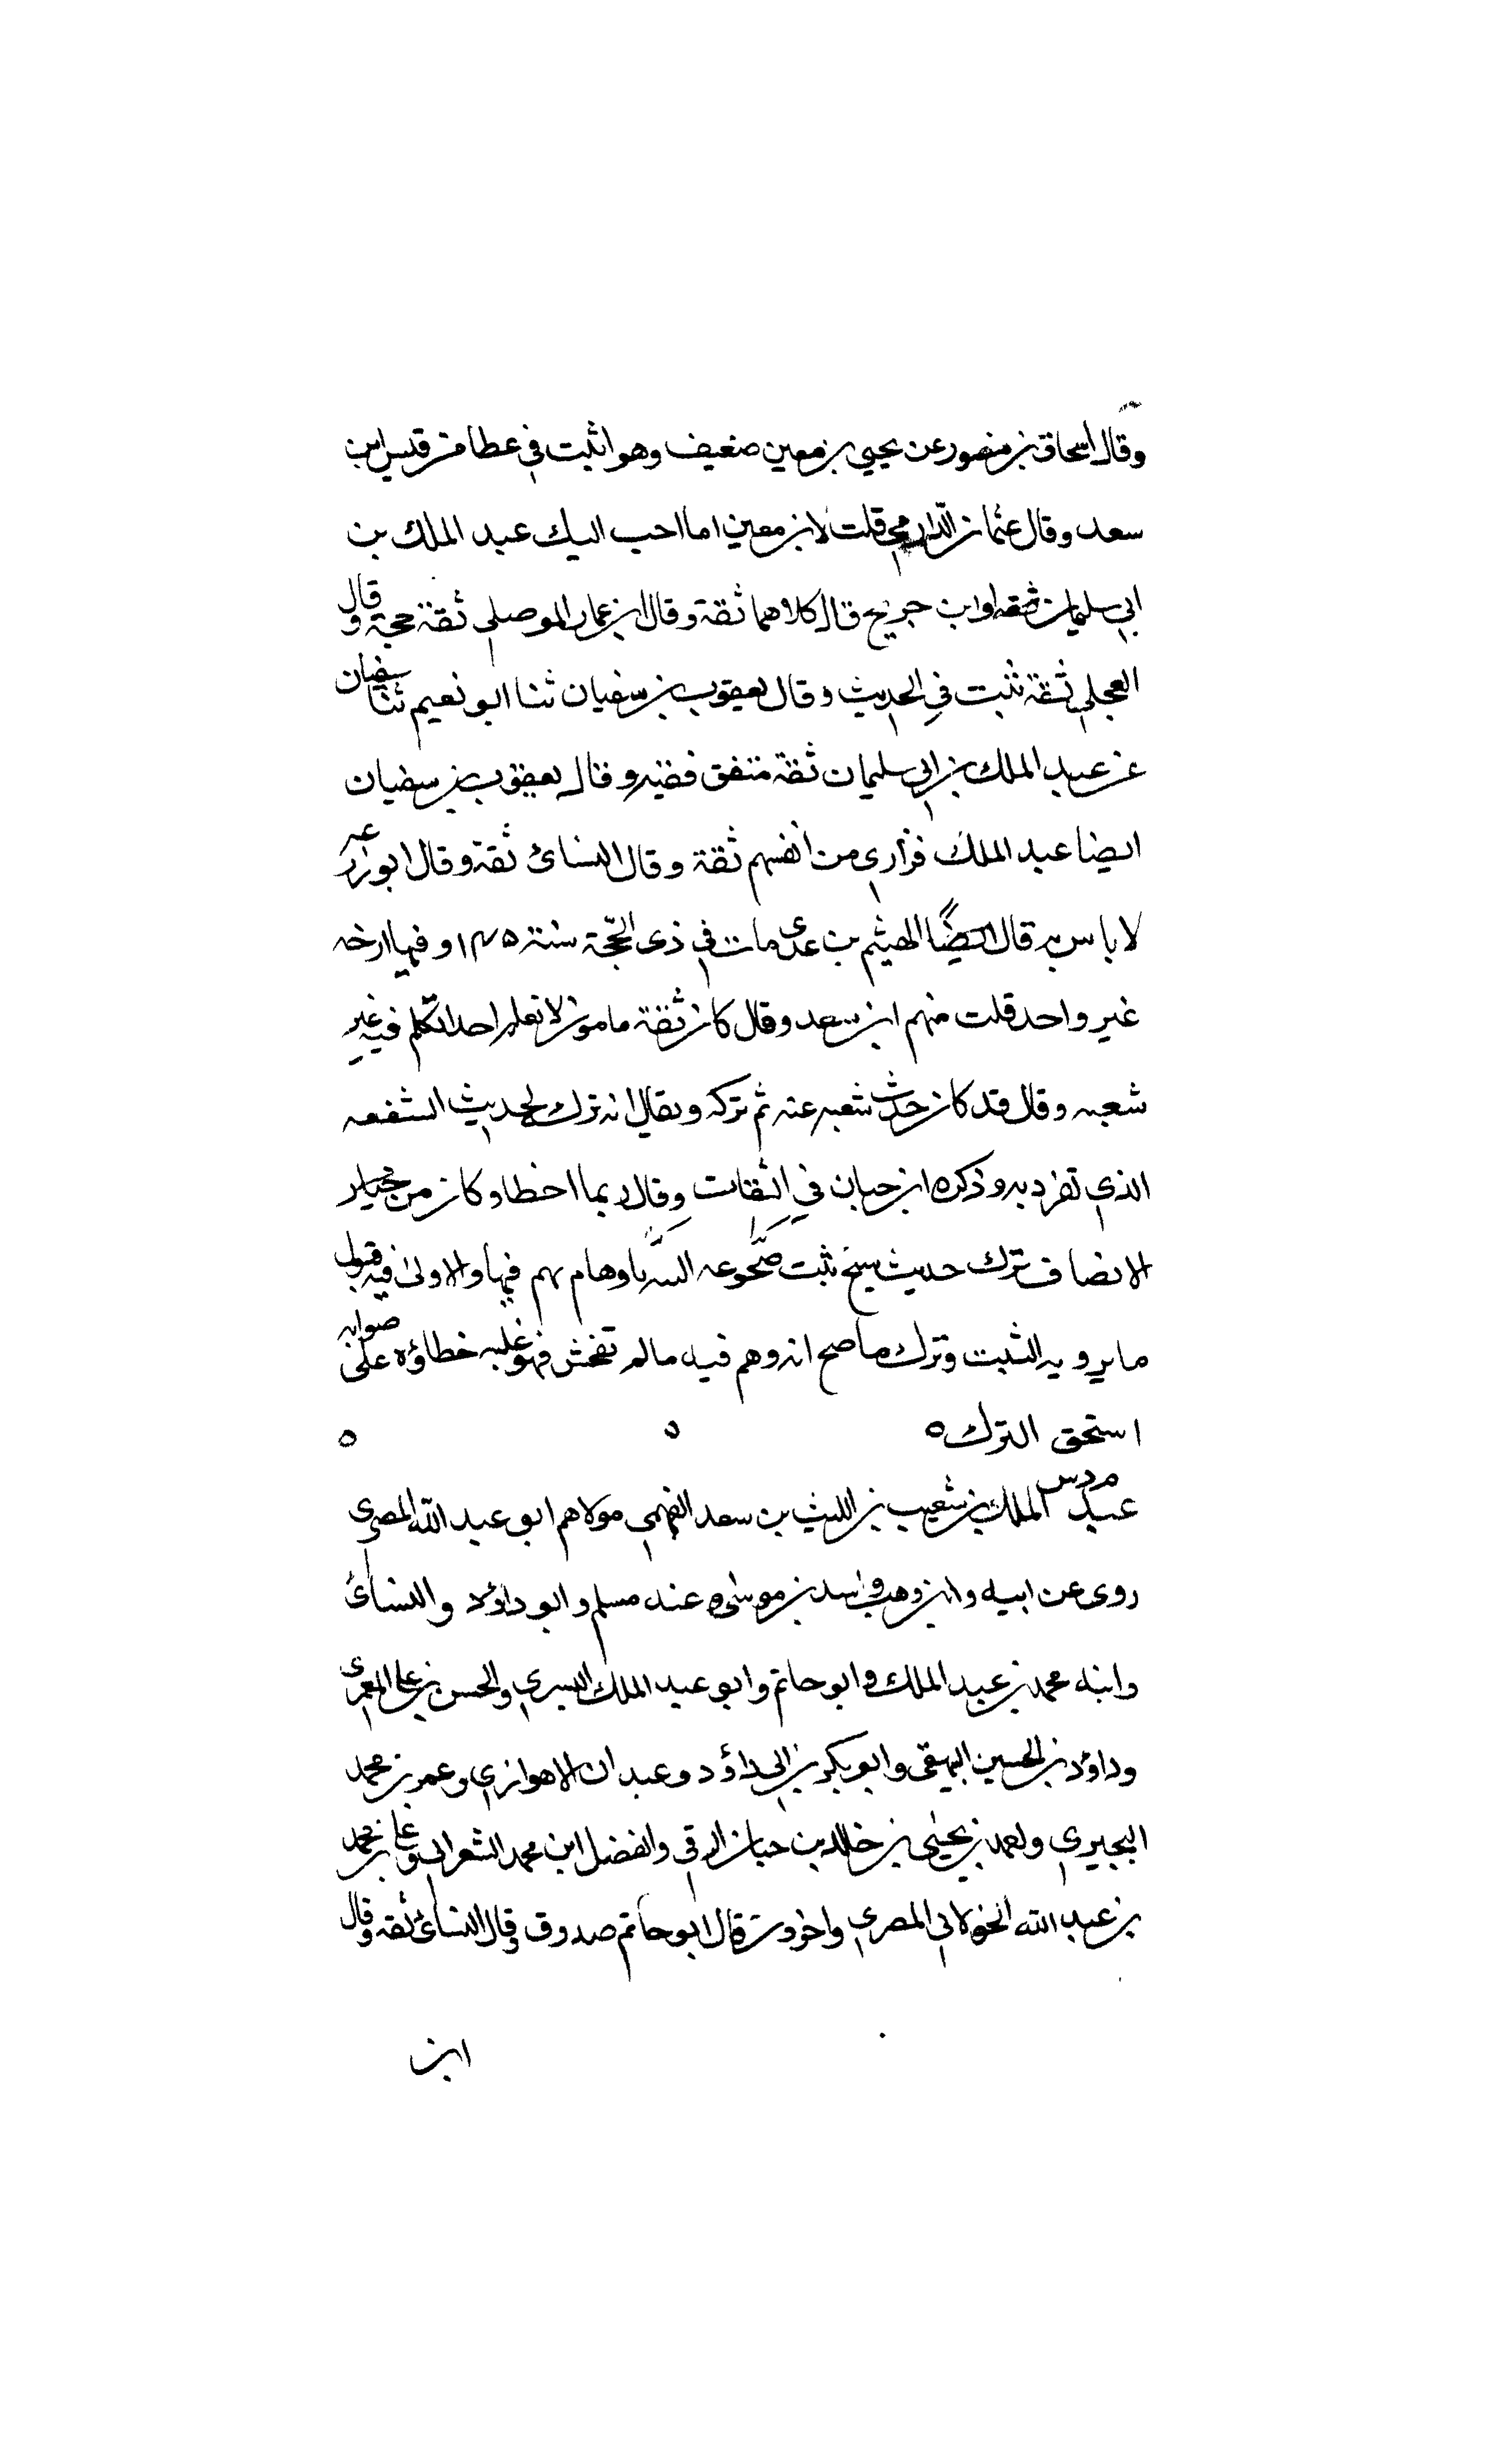 وقال اسحاق بن منصور عن يحيى بن معين ضعيف وهو اثبت في عطا من قيس ابن
سعد وقال عثمان الدارمي قلت لابن معين اما احب اليك عبد الملك بن
ابي سليمان او ابن جريج قال كلاهما ثقة وقال ابن عمار الموصلي ثقة حجة وقال
العجلي ثقة ثبت في الحديث وقال يعقوب بن سفيان ثنا ابو نعيم ثنا سفيان
عن عبد الملك بن ابي سليمان ثقة متفق فقيه وقال يعقوب بن سفيان
ايضا عبد الملك فزاري من انفسهم ثقة وقال النسائ ثقة وقال ابو زرعه
لا باس به قال الهيثم بن عدى مات في ذى الحجّة سنة ١٤٥ وفيها ارخه
غير واحد قلت منهم ابن سعد وقال كان ثقة مامون لا نعلم احدا تكلم فيه غير
شعبه وقال قد كان حدث شعبه عنه ثم تركه ويقال انه ترك لحديث الشفعه
الذي تفرد به وذكره ابن حبان في الثقات وقال ربما اخطا وكان من خيار
الانصاف ترك حديث شيخ ثبت باوهام يهم فيها والاولى فيه قبول
ما يرويه الثبت وترك ما صح انه وهم فيه ما لم تفحش فهو غلبه خطاؤه على صوابه
استحق الترك ٥ ٥ ٥
م د س
عبد الملك بن شعيب بن الليث بن سعد الفهمي مولاهم ابو عبد الله المصرى
روى عن ابيه وابن وهب واسد بن موسى وعنه مسلم وابو داؤد والنسائ
وابنه محمد بن عبد الملك وابو حاتم وابو عبد الملك البسري والحسن بن علي المعمرى
وداؤد بن الحسين البيهقى وابو بكر بن ابي داؤد وعبدان الاهوازي وعمر بن محمد
البجيري ومحمد بن يحيى بن خالد بن حبان الرقي والفضل ابن محمد الشعراني وعلي بن محمد
بن عبد الله الخولاني المصري واخرون قال ابو حاتم صدوق وقال النسائ ثقه وقال
ابن